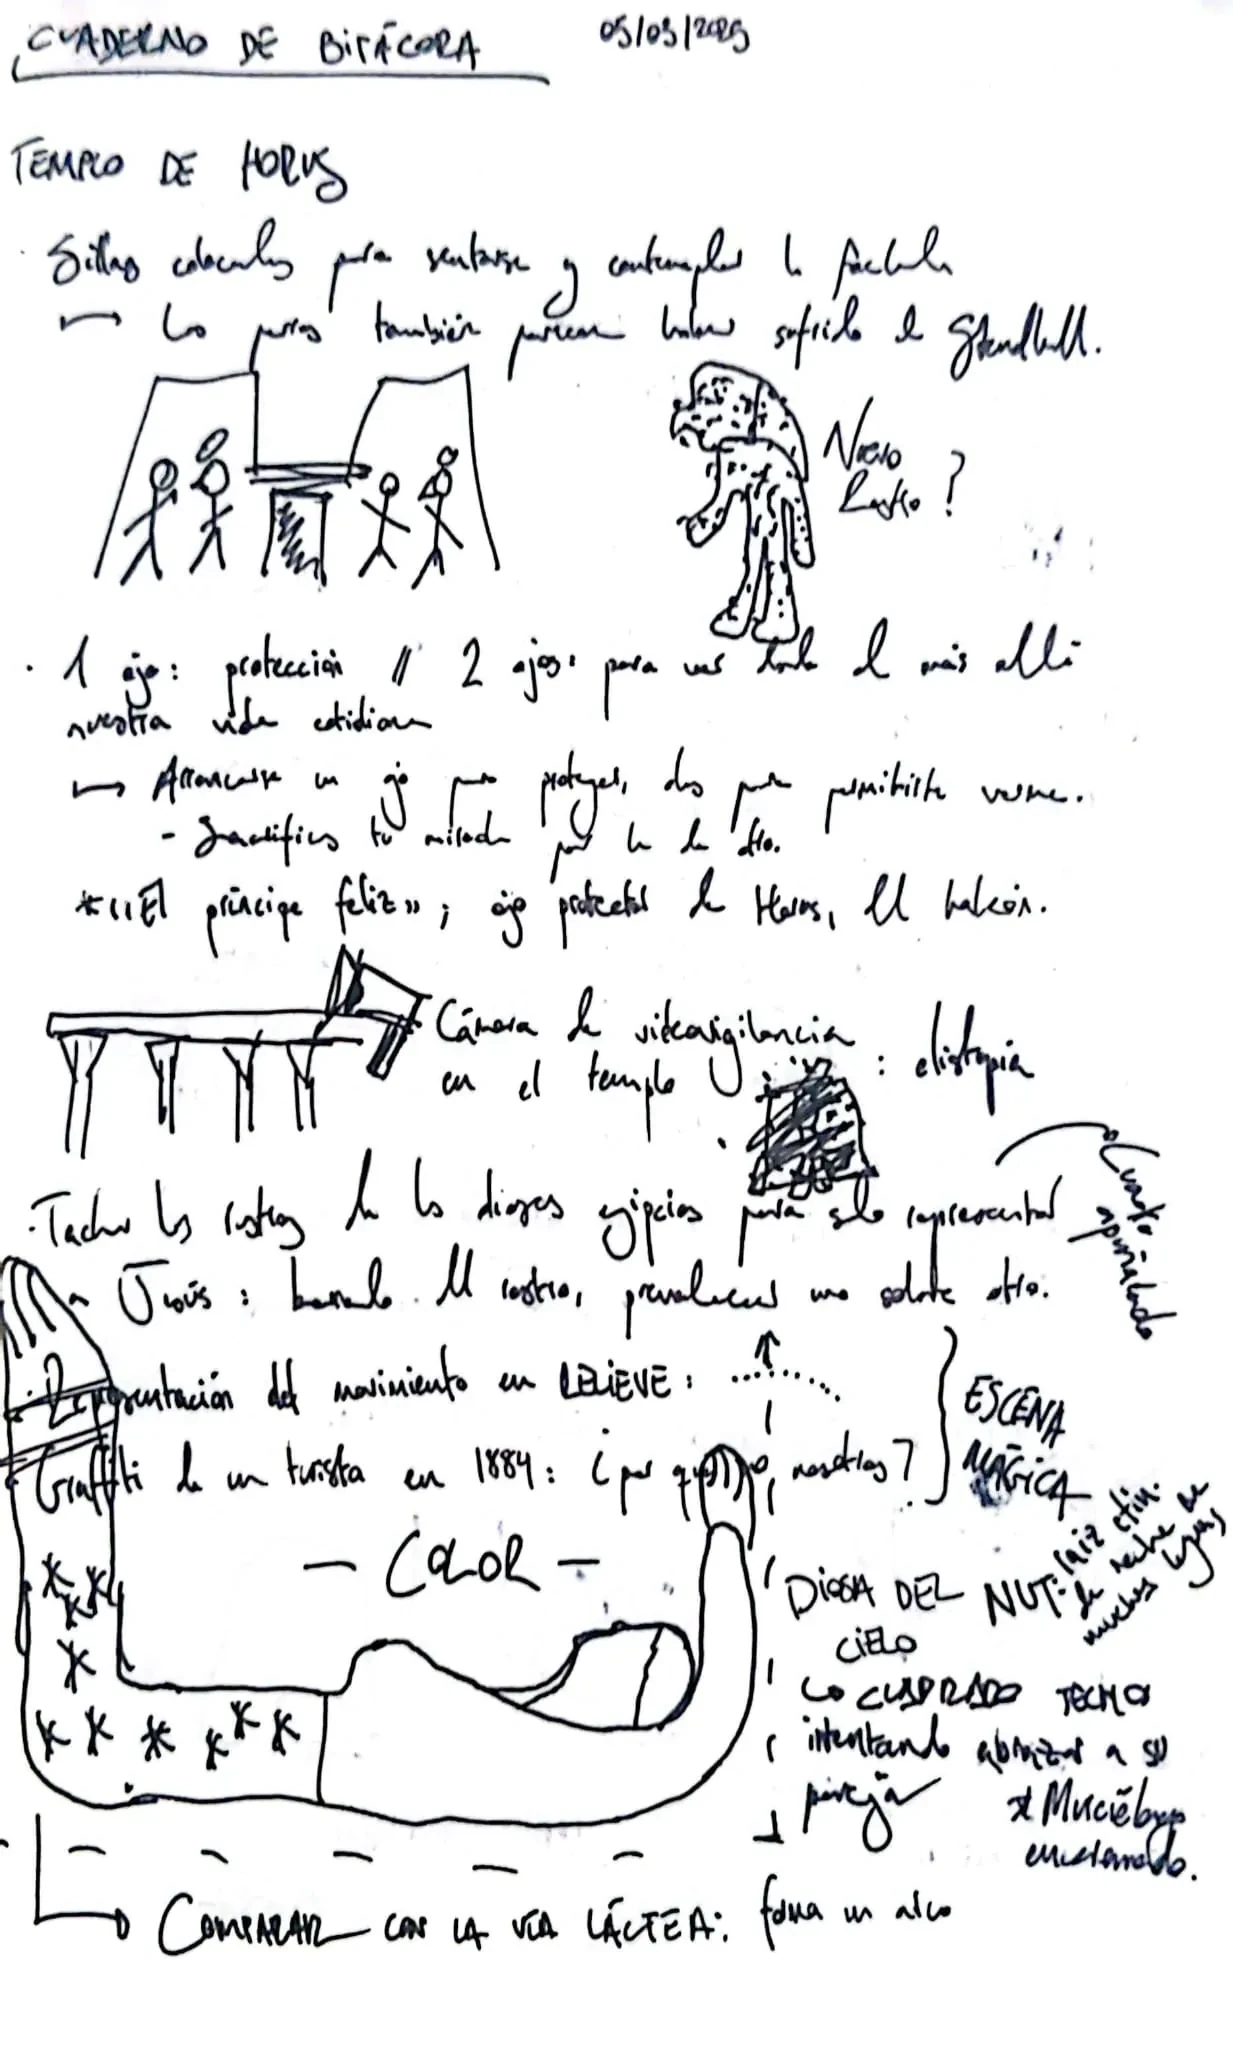 CUADERNO DE BITÁCORA 05/03/2025
TEMPLO DE HORUS
· Sillas colocadas para sentarse y contemplar la fachada
↦ Los perros también parecen haber sufrido el Stendhall.
Nuevo
rostro?
· 1 ojo: protección // 2 ojos: para ver desde el más allá
nuestra vida cotidiana
↦ Arrancarse un ojo para proteger, dos para permitirte verme.
- Sacrificas tu mirada por la de otro.
* «El príncipe feliz»; ojo protector de Horus, el halcón.
Cámara de videovigilancia
en el templo : distopia
· Tachar los rostros de los dioses egipcios para solo representar
a Jesús: borrando el rostro, prevalecer uno sobre otro.
Cuarto
apuñalado
· Representación del movimiento en RELIEVE:
Graffiti de un turista en 1884: ¿por qué no nosotros?
ESCENA
MÁGICA
- COLOR -
DIOSA DEL
CIELO
NUT: raíz etim.
de noche de
muchas lenguas
↳ CUADRADO TECHO
intentando abrazar a su
pareja
* Murciélago
encadenado.
COMPARAR CON LA VÍA LÁCTEA: forma un arco